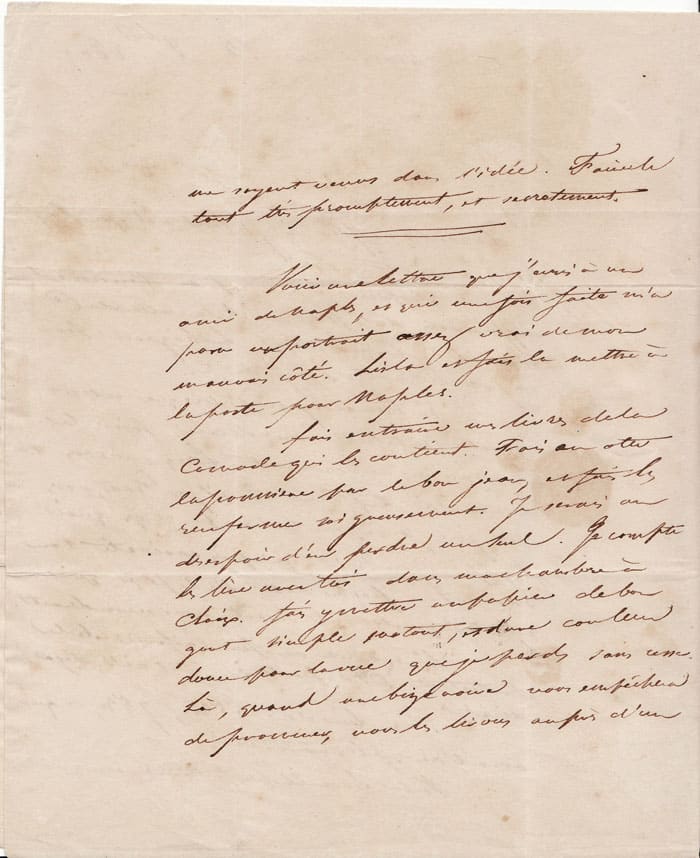 ne soyent venus dans l'idée. Fais le
tout très promptement, et secretement.
Voici une lettre que j'écris à un
ami de Naples, et qui une fois faite m'a
paru un portrait assez vrai de mon
mauvais côté. Lis la et fais la mettre à
la poste pour Naples.
fais entraire mes livres de la
Comode qui les contient. Fais en oter
la poussiere par le bon jean, et fais les
renfermer soigneusement. Je serais au
desespoir d'en perdre un seul. Je compte
les lire avec toi dans ma chambre à
Choix. fais y mettre un papier de bon
gout simple surtout, et d'une couleur
douce pour la vue que je perds sans cesse.
Là, quand une bize noire vous empêchera
de promener, nous les lirons auprès d'un